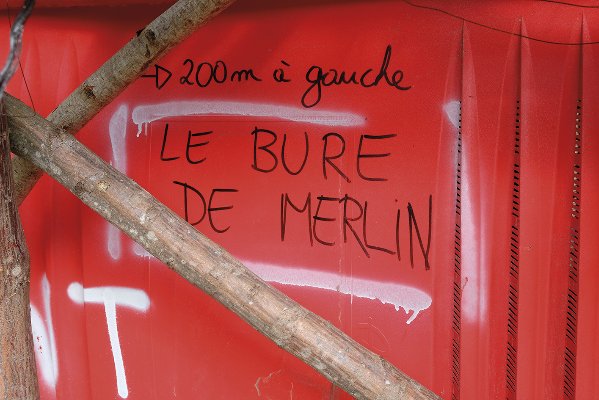 → 200m à gauche
LE BURE
DE MERLIN
T